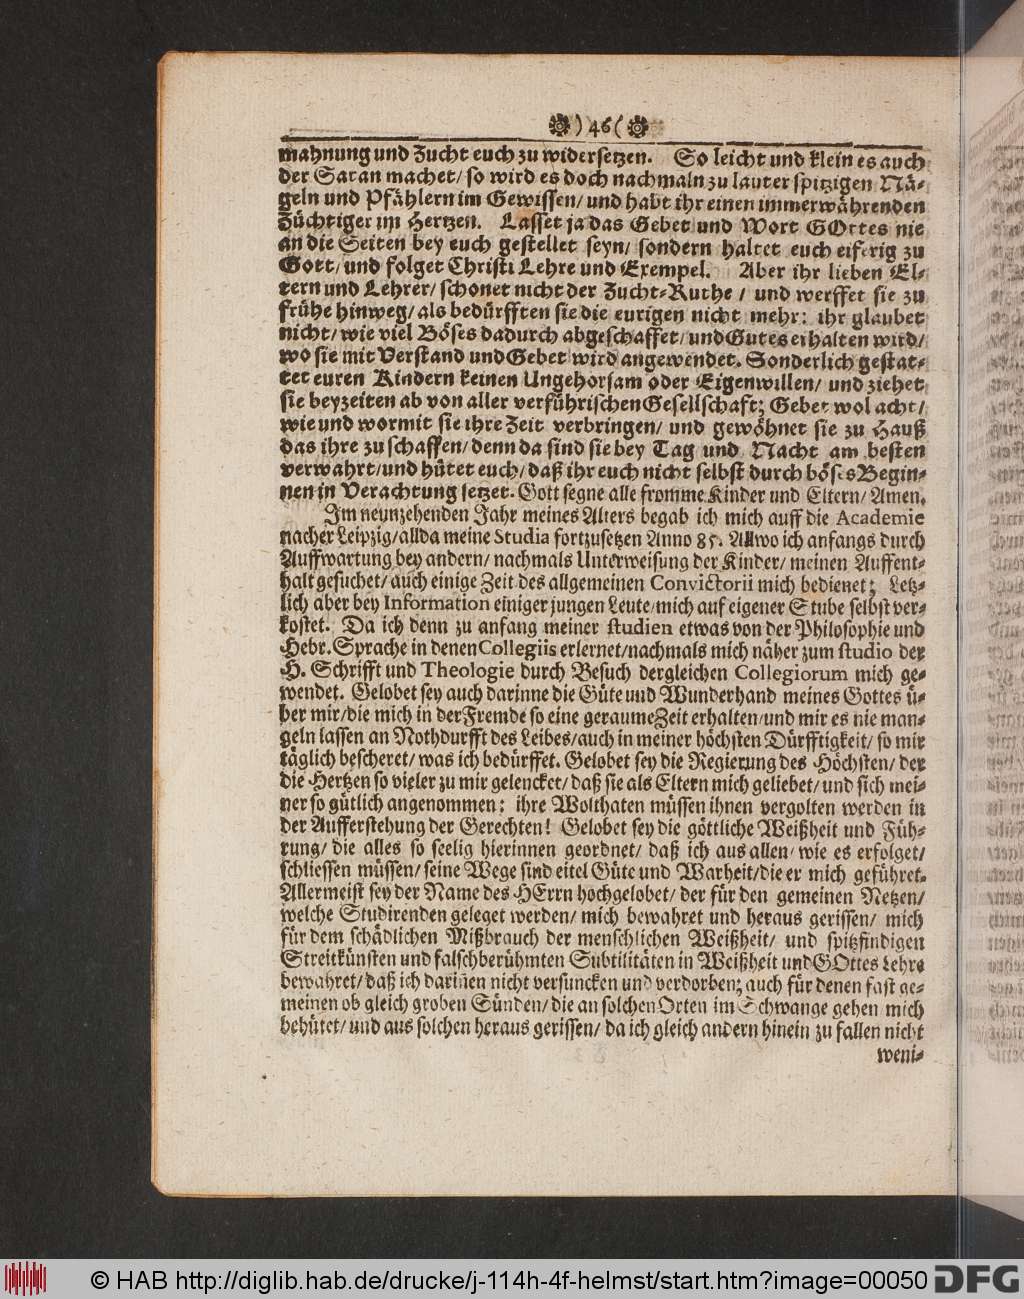 ) 46 (
mahnung und Zucht euch zu widersetzen. So leicht und klein es auch
der Satan machet/ so wird es doch nachmaln zu lauter spitzigen Nä-
geln und Pfählern im Gewissen/ und habt ihr einen immerwährenden
Züchtiger im Hertzen. Lasset ja das Gebet und Wort GOttes nie
an die Seiten bey euch gestellet seyn/ sondern haltet euch eiferig zu
Gott/ und folget Christi Lehre und Exempel. Aber ihr lieben El-
tern und Lehrer/ schonet nicht der Zucht-Ruthe / und werffet sie zu
frühe hinweg/ als bedürfften sie die eurigen nicht mehr: ihr glaubet
nicht/ wie viel Böses dadurch abgeschaffet/ und Gutes erhalten wird/
wo sie mit Verstand und Gebet wird angewendet. Sonderlich gestat-
tet euren Kindern keinen Ungehorsam oder Eigenwillen/ und ziehet
sie beyzeiten ab von aller verführischen Gesellschaft; Gebet wol acht/
wie und wormit sie ihre Zeit verbringen/ und gewöhnet sie zu Hauß
das ihre zu schaffen/ denn da sind sie bey Tag und Nacht am besten
verwahrt/ und hütet euch/ daß ihr euch nicht selbst durch böses Begin-
nen in Verachtung setzet. Gott segne alle fromme Kinder und Eltern/ Amen.
Im neunzehenden Jahr meines Alters begab ich mich auff die Academie
nacher Leipzig/ allda meine Studia fortzusetzen Anno 85. Allwo ich anfangs durch
Auffwartung bey andern/ nachmals Unterweisung der Kinder/ meinen Auffent-
halt gesuchet/ auch einige Zeit des allgemeinen Convictorii mich bedienet; Letz-
lich aber bey Information einiger jungen Leute/ mich auf eigener Stube selbst ver-
kostet. Da ich denn zu anfang meiner studien etwas von der Philosophie und
Hebr. Sprache in denen Collegiis erlernet/ nachmals mich näher zum studio der
H. Schrifft und Theologie durch Besuch dergleichen Collegiorum mich ge-
wendet. Gelobet sey auch darinne die Güte und Wunderhand meines Gottes ü-
ber mir/ die mich in der Fremde so eine geraume Zeit erhalten/ und mir es nie man-
geln lassen an Nothdurfft des Leibes/ auch in meiner höchsten Dürfftigkeit/ so mir
täglich bescheret/ was ich bedürffet. Gelobet sey die Regierung des Höchsten/ der
die Hertzen so vieler zu mir gelencket/ daß sie als Eltern mich geliebet/ und sich mei-
ner so gütlich angenommen: ihre Wolthaten müssen ihnen vergolten werden in
der Aufferstehung der Gerechten! Gelobet sey die göttliche Weißheit und Füh-
rung/ die alles so seelig hierinnen geordnet/ daß ich aus allen/ wie es erfolget/
schliessen müssen/ seine Wege sind eitel Güte und Warheit/ die er mich geführet.
Allermeist sey der Name des HErrn hochgelobet/ der für den gemeinen Netzen/
welche Studirenden geleget werden/ mich bewahret und heraus gerissen/ mich
für dem schädlichen Mißbrauch der menschlichen Weißheit/ und spitzfindigen
Streitkünsten und falschberühmten Subtilitäten in Weißheit und GOttes Lehre
bewahret/ daß ich dariñen nicht versuncken und verdorben; auch für denen fast ge-
meinen ob gleich groben Sünden/ die an solchen Orten im Schwange gehen mich
behütet/ und aus solchen heraus gerissen/ da ich gleich andern hinein zu fallen nicht
weni-
© HAB http://diglib.hab.de/drucke/j-114h-4f-helmst/start.htm?image=00050 DFG